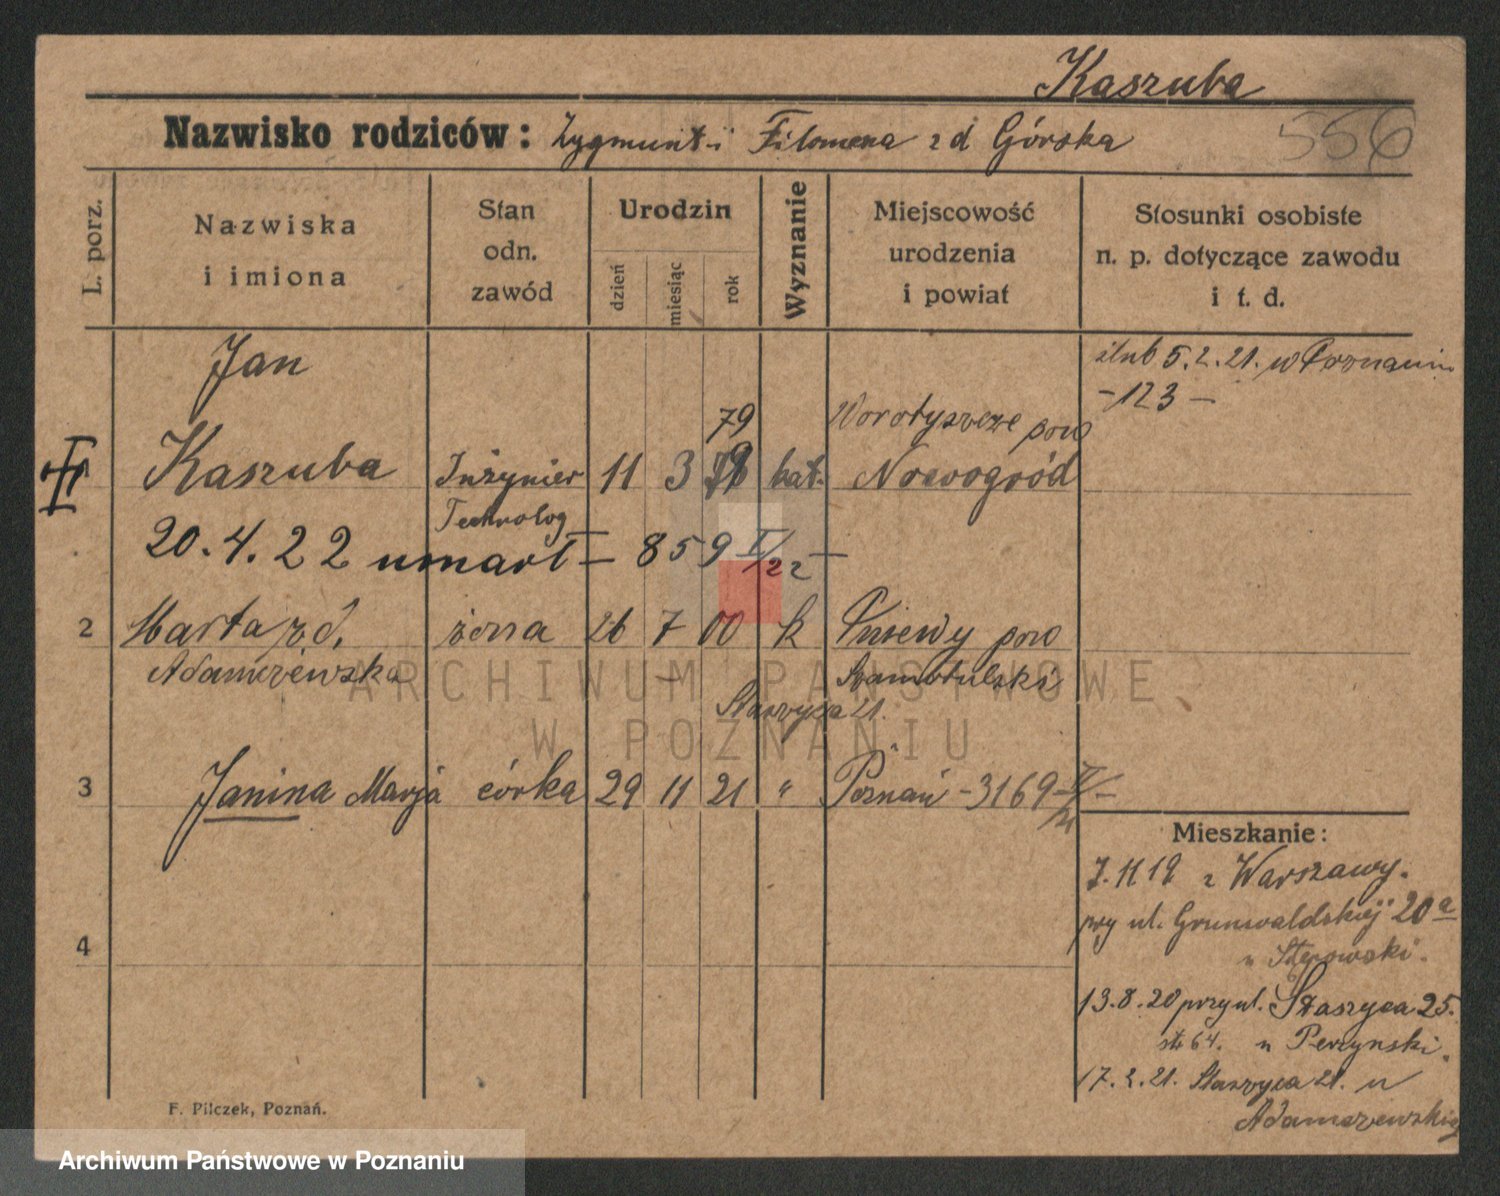 Kaszuba
556
Nazwisko rodziców: Zygmunt i Filomena z d Górska
L. porz.
Nazwiska
i imiona
Stan
odn.
zawód
Urodzin
dzień
miesiąc
rok
Wyznanie
Miejscowość
urodzenia
i powiat
Stosunki osobiste
n. p. dotyczące zawodu
i t. d.
Jan
ślub 5.2.21. w Poznaniu
-123-
79
pow
Kaszuba Inżynier 11 3 kat. Nowogród
Technolog
20.4.22 umarł - 859 I/22 -
2 Marta z d. żona 26 7 00 k Pniewy pow
Adamczewska Szamotulski
Staszyca 21.
3 Janina Marja córka 29 11 21 " Poznań - 3169
Mieszkanie:
7.11 19 z Warszawy.
przy ul. Grunwaldskiej 20a
u
13.8.20 przy ul. Staszyca 25.
64. u Perzynski.
17.2.21. Staszyca 21. u
Adamczewskiej
4
F. Pilczek, Poznań.
ARCHIWUM PAŃSTWOWE
W POZNANIU
Archiwum Państwowe w Poznaniu